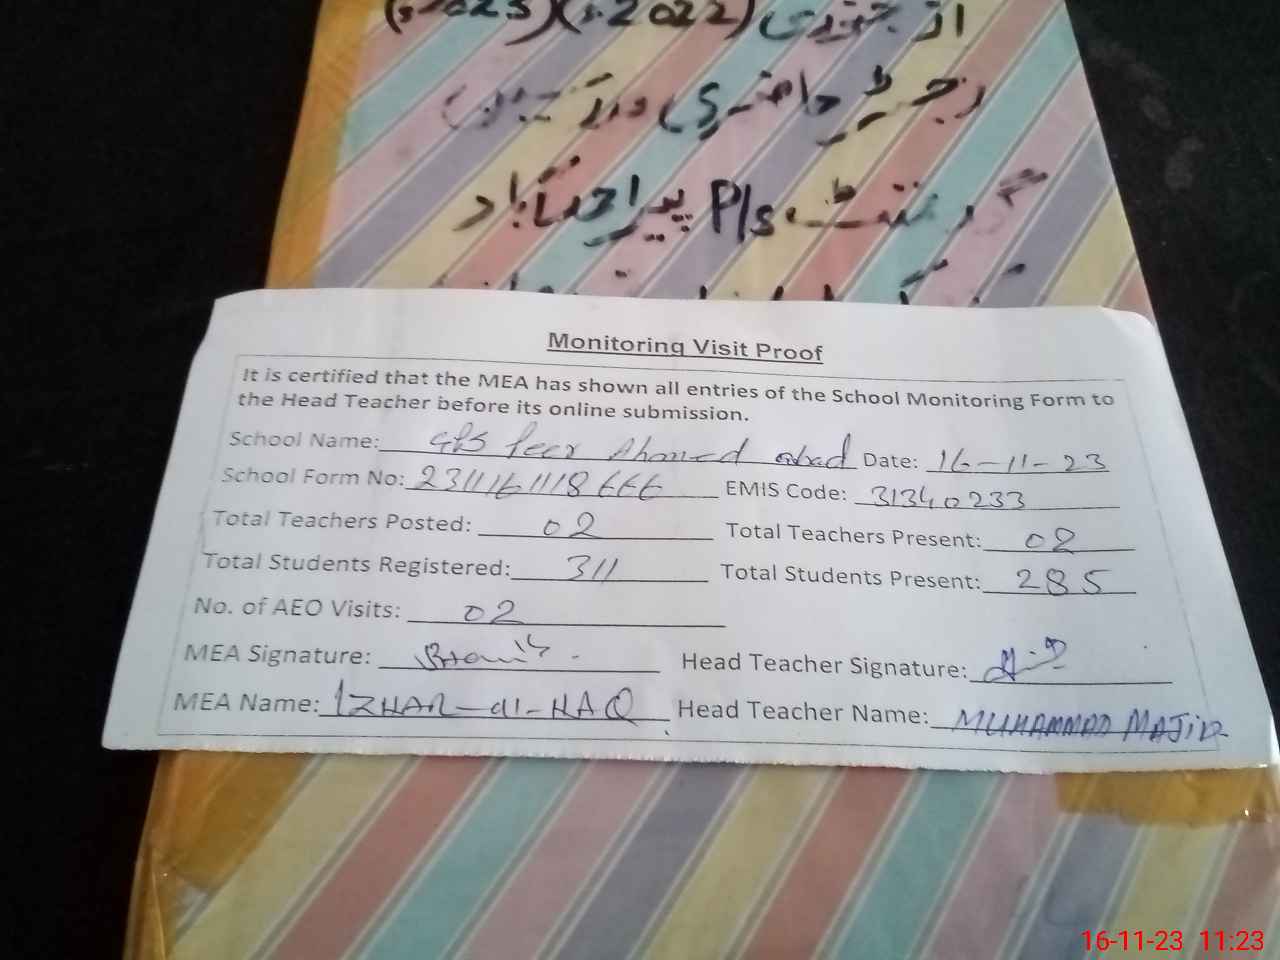 از جنوری (2022ء)(2023ء)
رجسٹر حاضری مدرسین
گورنمنٹ P/s پیر احمد آباد
Monitoring Visit Proof
It is certified that the MEA has shown all entries of the School Monitoring Form to
the Head Teacher before its online submission.
School Name: GPS Peer Ahmed abad Date: 16-11-23
School Form No: 2311161118666 EMIS Code: 31340233
Total Teachers Posted: 02 Total Teachers Present: 02
Total Students Registered: 311 Total Students Present: 285
No. of AEO Visits: 02
MEA Signature: Head Teacher Signature:
MEA Name: IZHAR-ul-HAQ Head Teacher Name: MUHAMMAD MAJID
16-11-23 11:23